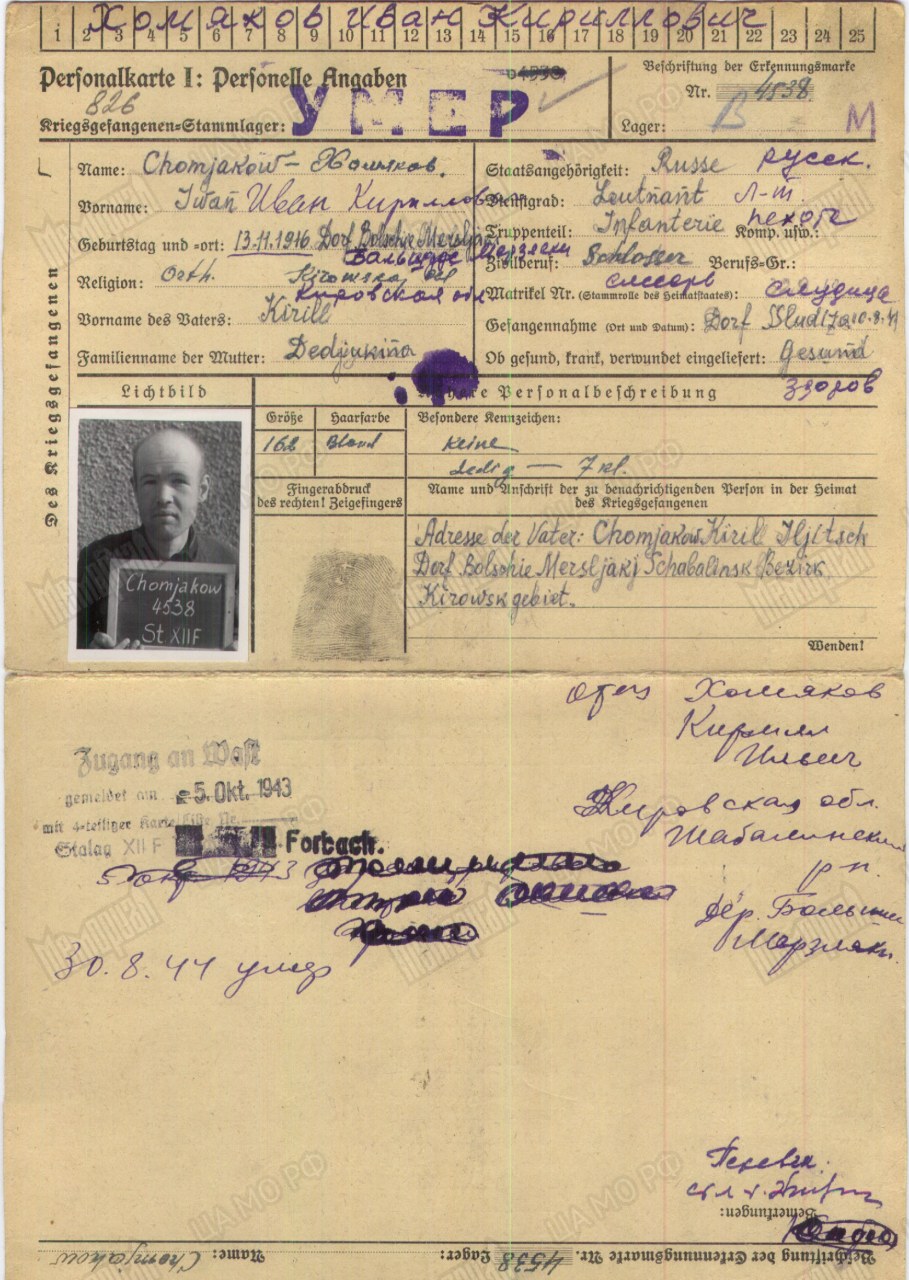 Хомяков Иван Кириллович
1 2 3 4 5 6 7 8 9 10 11 12 13 14 15 16 17 18 19 20 21 22 23 24 25
Personalkarte I: Personelle Angaben
826
Kriegsgefangenen-Stammlager:
УМЕР
4538
Beschriftung der Erkennungsmarke
Nr. 4538
Lager: В М
Des Kriegsgefangenen
Name: Chomjakow – Хомяков.
Vorname: Iwan Иван Кириллов
Geburtstag und =ort: 13.11.1916. Dorf Bolschie
Большие Мерзляки
Religion: Orth. Kirowska
Кировская обл
Vorname des Vaters: Kirill
Familienname der Mutter: Dedjukina
Staatsangehörigkeit: Russe русск.
Dienstgrad: Leutnant Л-т
Truppenteil: Infanterie Komp. usw.: пехота
Zivilberuf: Schlosser Berufs-Gr.:
слесарь
Matrikel Nr. (Stammrolle des Heimatstaates): слудица
Gefangennahme (Ort und Datum): Dorf Sludiza 10.8.41
Ob gesund, krank, verwundet eingeliefert: Gesund
здоров
Lichtbild
Nähere Personalbeschreibung
Größe Haarfarbe Besondere Kennzeichen:
168 Blond Keine
ledig — 7 kl.
Fingerabdruck
des rechten! Zeigefingers
Name und Anschrift der zu benachrichtigenden Person in der Heimat
des Kriegsgefangenen
Adresse der Vater: Chomjakow Kirill Iljitsch
Dorf Bolschie Mersljaki Schabalinsk Bezirk
Kirowsk gebiet.
Wenden!
Chomjakow
4538
St XII F
отец Хомяков
Кирилл
Ильич
Кировская обл.
Шабалинский
р-н.
дер. Большие
Мерзляки.
Zugang an WaSt
gemeldet am 5. Okt. 1943
mit 4-teiliger Kartei Liste Nr.
Stalag XII F Forbach.
30.8.44 умер
Перевел:
Bemerkungen:
Beschriftung der Erkennungsmarke Nr. 4538 Lager: Name: Chomjakow
Мемориал
ЦАМО РФ